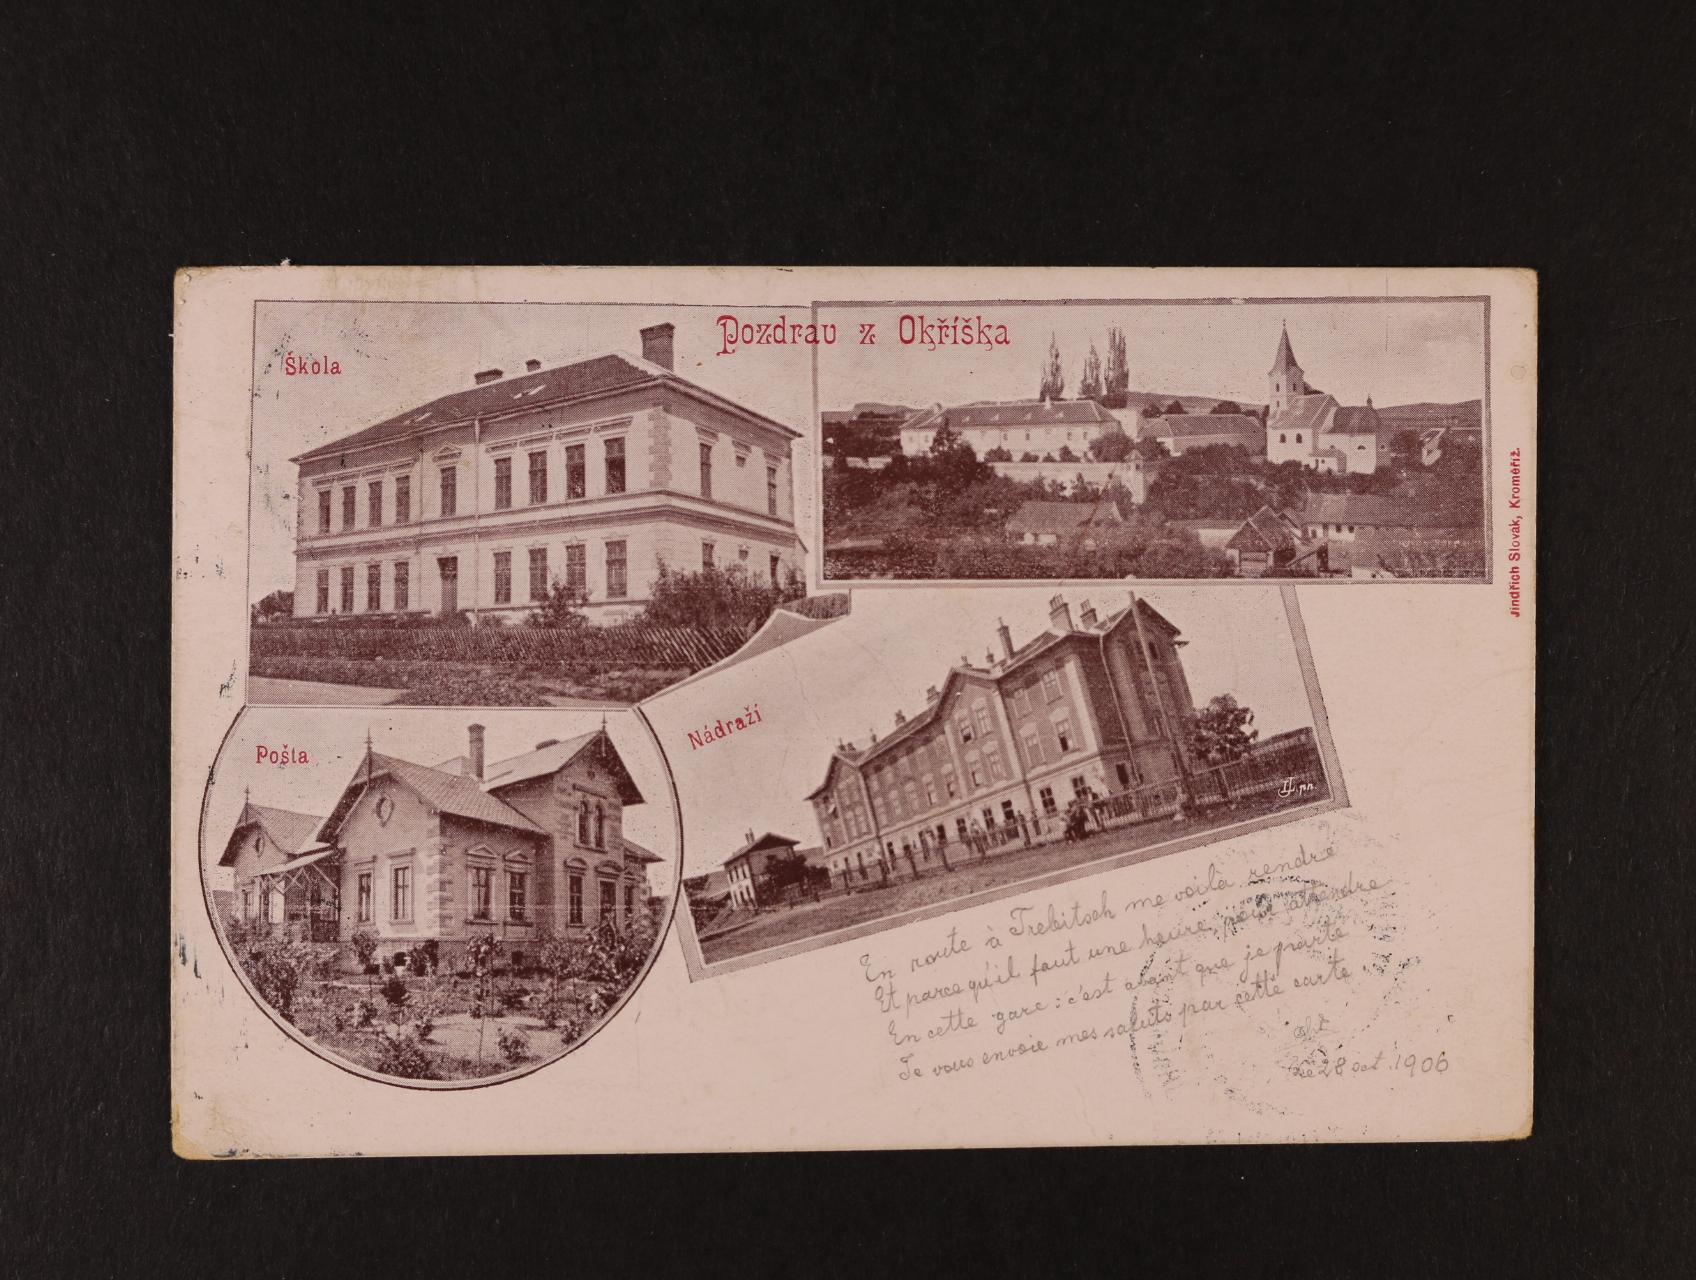 Pozdrav z Okříška
Škola
Pošta
Nádraží
Jindřich Slovak, Kroměříž.
En route à Trebitsch me voilà rendre
Et parce qu'il faut une heure, peut attendre
En cette gare : c'est avant que je parte
Je vous envoie mes saluts par cette carte
Le 28 oct. 1906